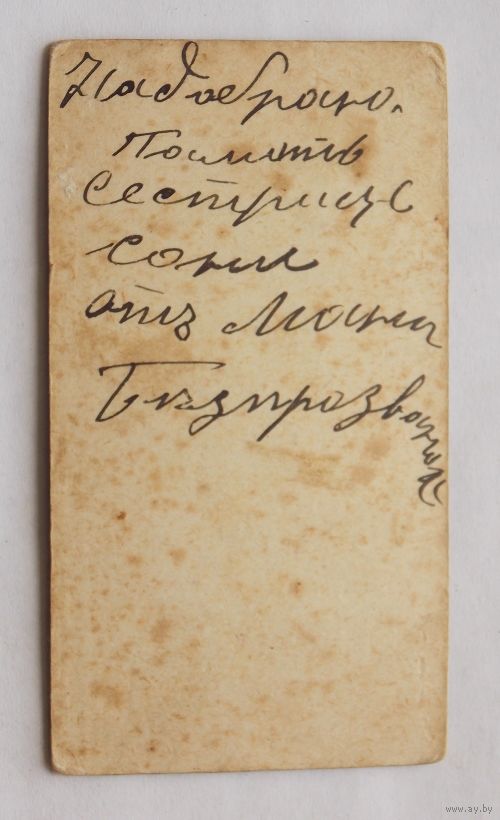 На добраю.
Помять
Сестрице
Сони
отъ Мани
Безпрозваной
www.ay.by